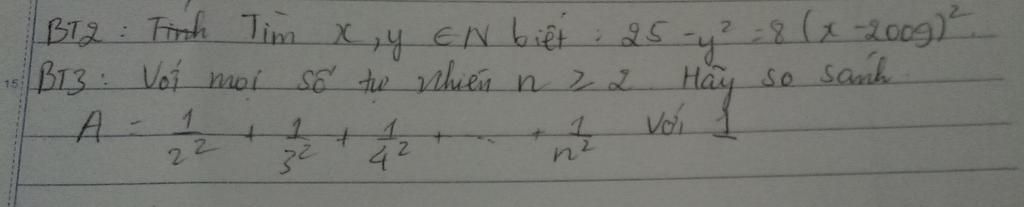 BT2 : Tính Tìm x, y ∈ N biết : 25 - y² = 8(x - 2009)².
15 BT3 : Với mọi số tự nhiên n ≥ 2 Hãy so sánh
A = 1/2² + 1/3² + 1/4² + ... + 1/n² với 1